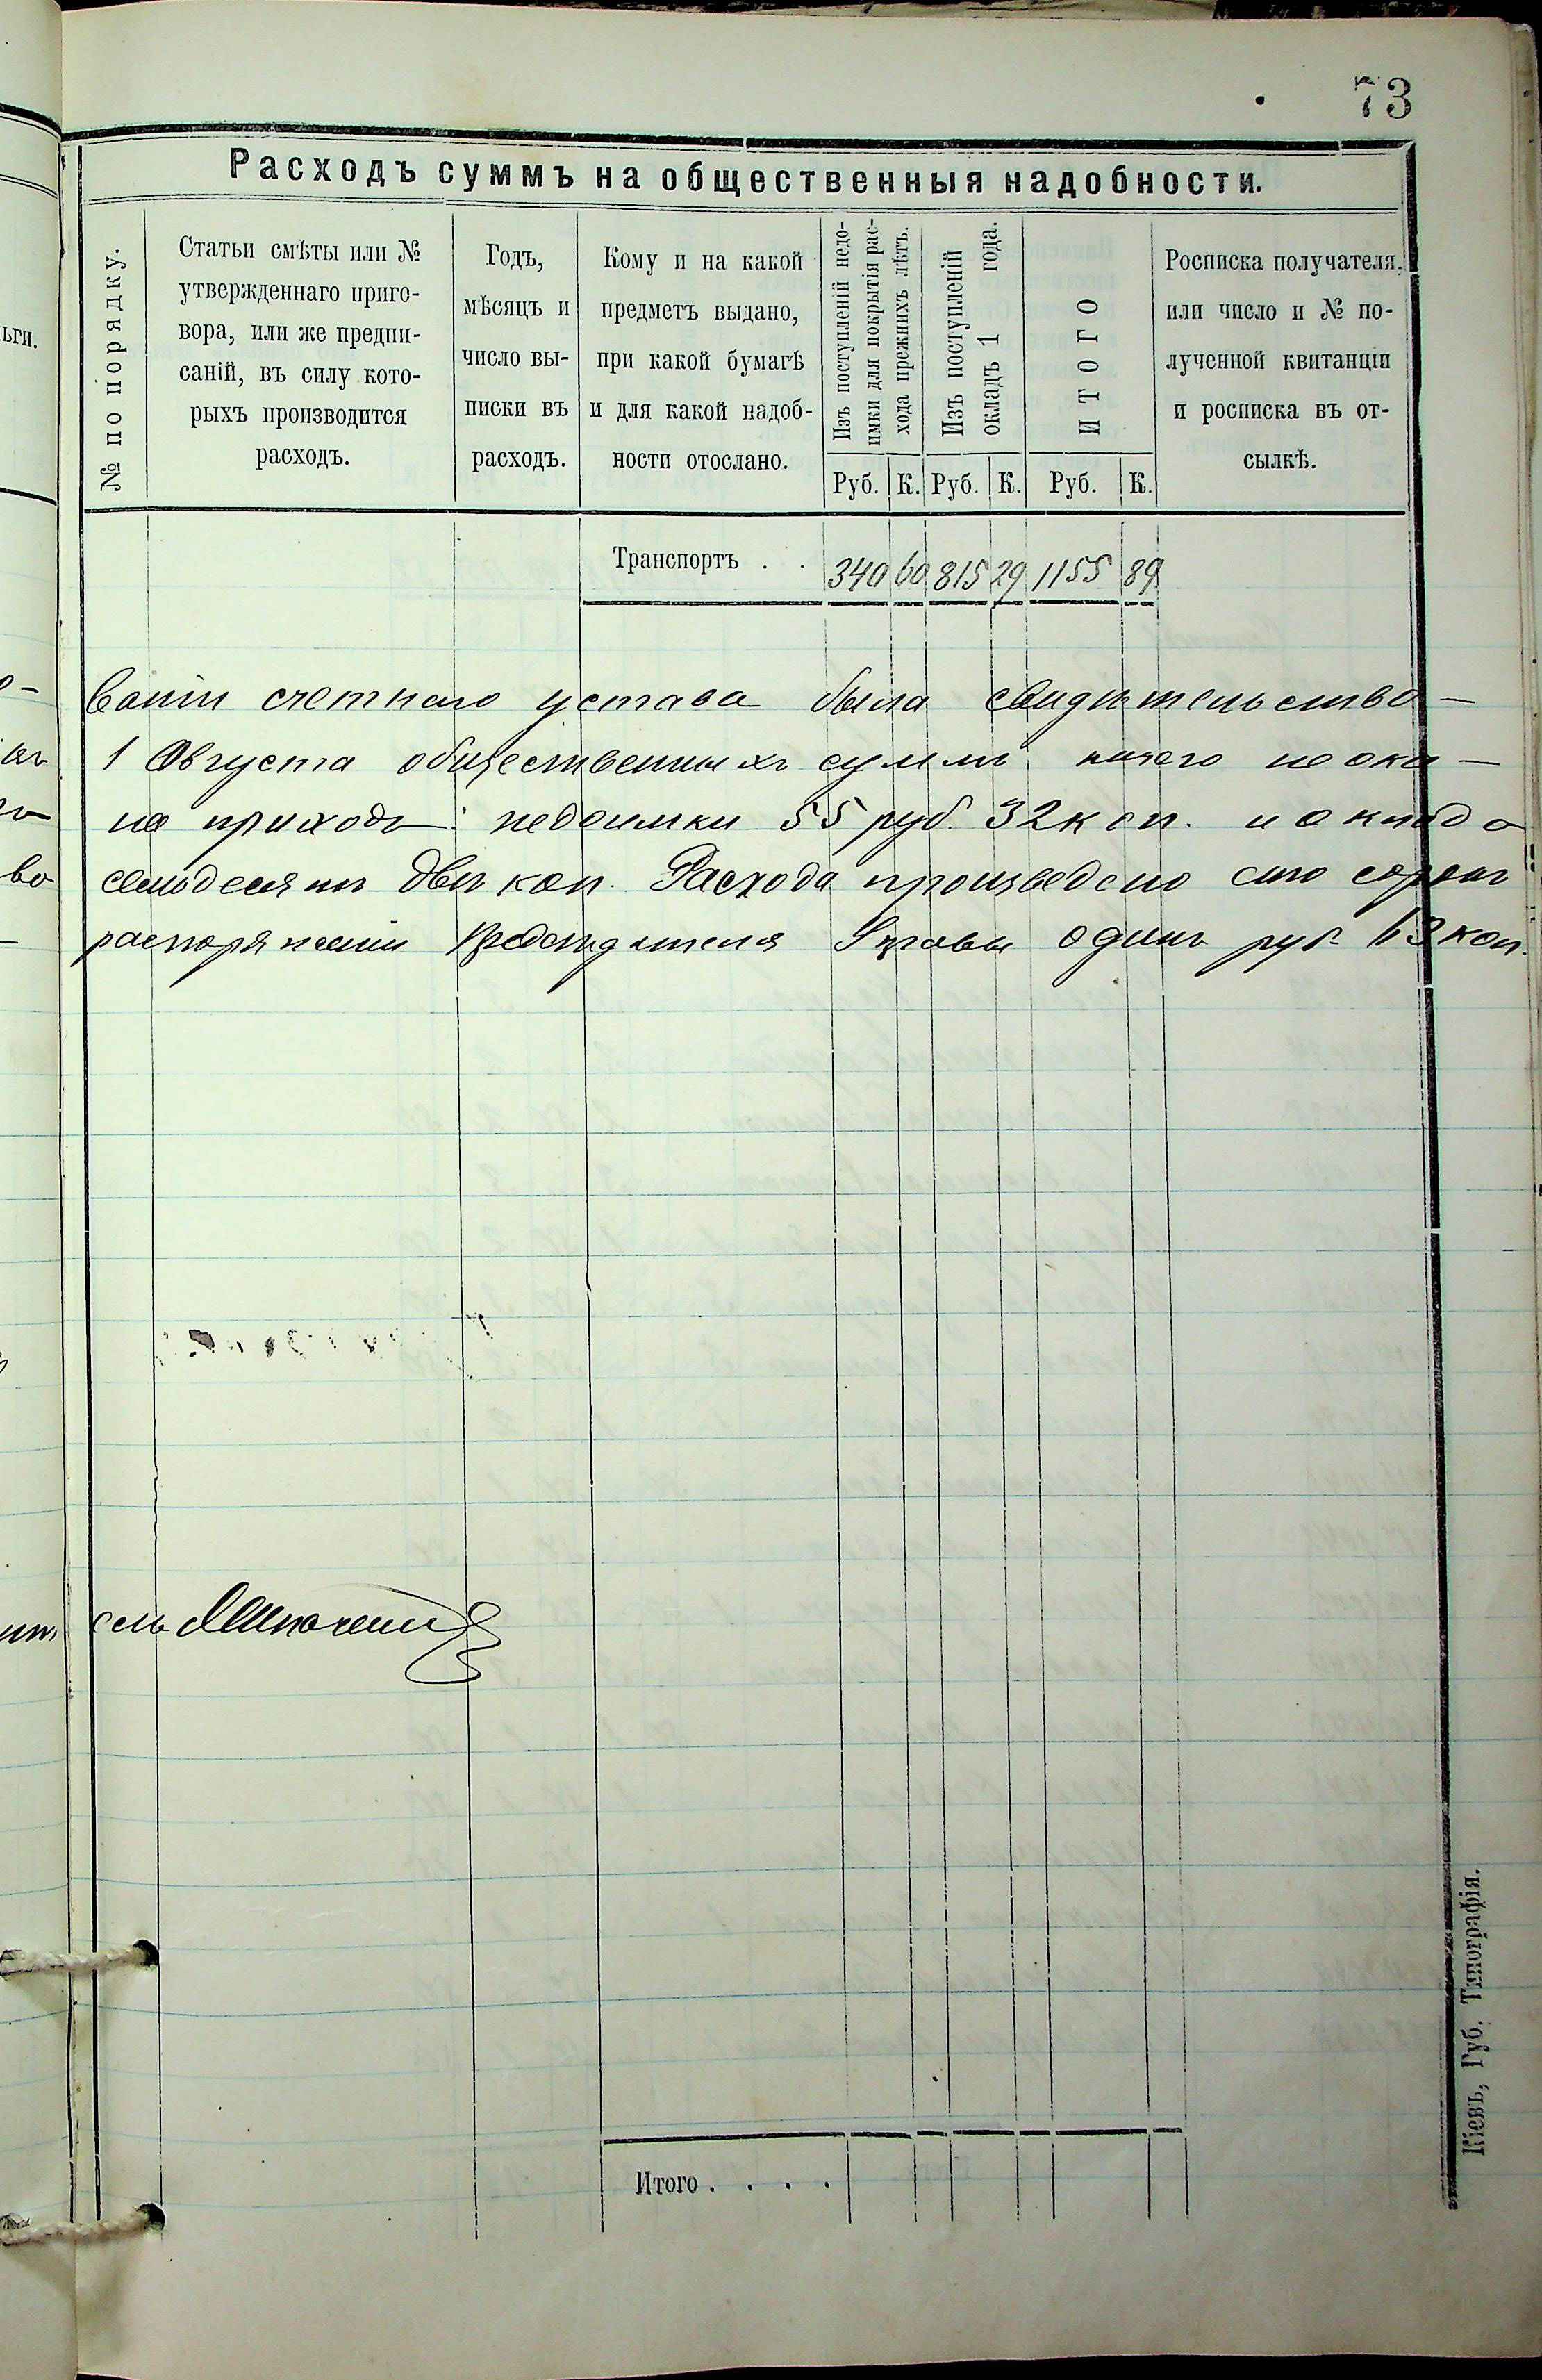 73
Расходъ суммъ на общественныя надобности.
№ по порядку.
Статьи смѣты или №
утвержденнаго приго-
вора, или же предпи-
саній, въ силу кото-
рыхъ производится
расходъ.
Годъ,
мѣсяцъ и
число вы-
писки въ
расходъ.
Кому и на какой
предметъ выдано,
при какой бумагѣ
и для какой надоб-
ности отослано.
Изъ поступленій недо-
имки для покрытія рас-
хода прежнихъ лѣтъ.
Изъ поступленій
окладъ 1 года.
ИТОГО
Росписка получателя,
или число и № по-
лученной квитанціи
и росписка въ от-
сылкѣ.
Руб. К. Руб. К. Руб. К.
Транспортъ . . 340 60 815 29 1155 89
ваніи счетнаго устава была свидѣтельство-
1 Августа общественныхъ суммъ ничего не ока-
на приходъ: недоимки 55 руб. 32 коп. и оклада
семьдесятъ двѣ коп. Расхода произведено сто сорокъ
распоряженіи Предсѣдателя Управы одинъ руб 63 коп.
сель
Итого . . . .
Кіевъ, Губ. Типографія.
ьги.
во